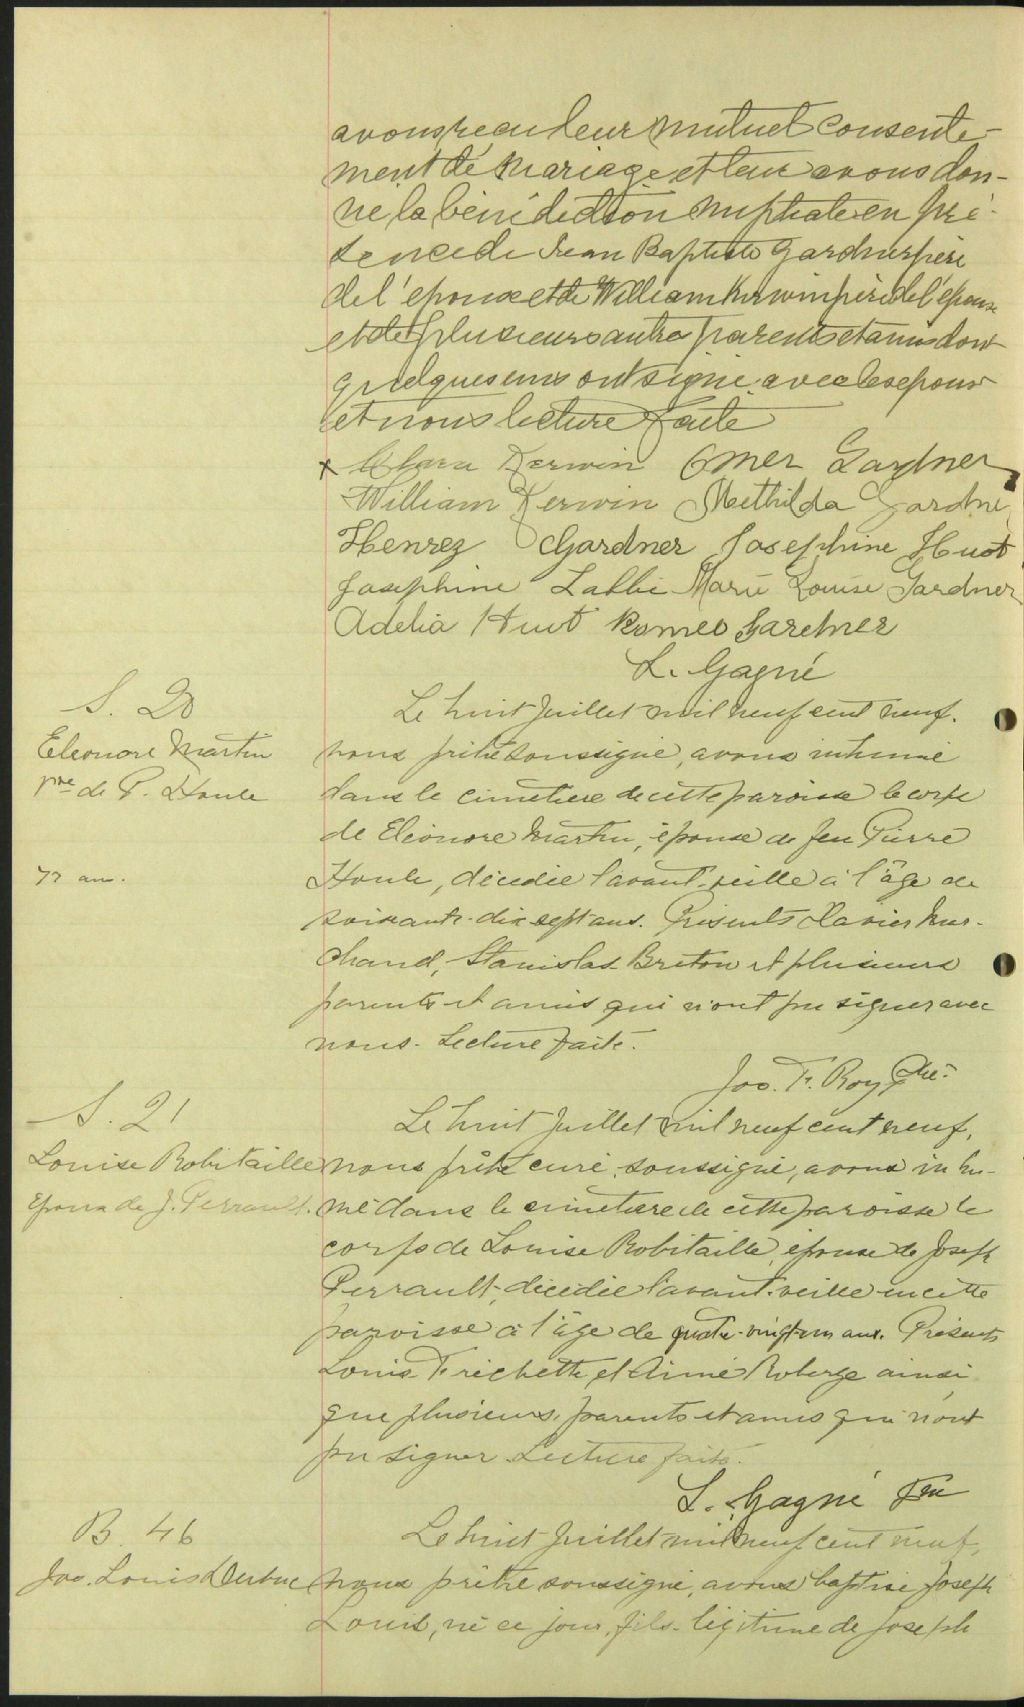 avons reçu leur mutuel consente-
ment de mariage et leur avons don-
né la bénédiction nuptiale en pré-
sence de Jean Baptiste Gardner père
de l'époux et de William Kerwin père de l'épouse
et de plusieurs autres parents et amis dont
quelques uns ont signé avec les époux
et nous lecture faite
x Clara Kerwin Omer Gardner
William Kerwin Methilda Gardne
Henrez Gardner Josephine Huot
Josephine Labbé Marie Louise Gardner
Adelia Huot Romeo Gardner
L. Gagné
S. 20
Eleonore Martin
vve de P. Houle
77 ans.
Le huit juillet mil neuf cent neuf.
nous prêtre soussigné, avons inhumé
dans le cimetière de cette paroisse le corps
de Eléonore Martin, épouse de feu Pierre
Houle, décédée l'avant-veille à l'âge de
soixante-dix-sept ans. Présents Xavier Mar-
chand, Stanislas Breton et plusieurs
parents et amis qui n'ont pu signer avec
nous. Lecture faite.
Jos. F. Roy Ptre
S. 21
Louise Robitaille
épouse de J. Perrault.
Le huit juillet mil neuf cent neuf,
nous prêtre curé soussigné, avons inhu-
mé dans le cimetière de cette paroisse le
corps de Louise Robitaille, épouse de Joseph
Perrault, décédée l'avant-veille en cette
paroisse à l'âge de quatre-vingt-un ans. Présents
Louis Frechette et Aimé Roberge ainsi
que plusieurs parents et amis qui n'ont
pu signer. Lecture faite.
L. Gagné Ptre
B. 46
Jos. Louis Dubuc
Le huit juillet mil neuf cent neuf,
nous prêtre soussigné, avons baptisé Joseph
Louis, né ce jour, fils légitime de Joseph